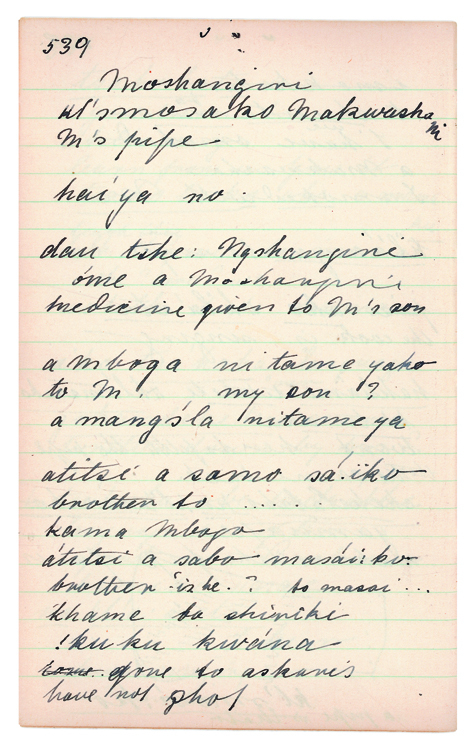 539
Moshangini
at's mosako Makwasha
Mi
M's pipe
hai ya no.
dau tshe: Ngshangine
óme a Moshangini
medicine given to M's son
a mboga ni tame yako
to M. my son ?
a mangśla nitameya
atitsi a samo sá.iko
brother to ......
kama Mbogo
átitsi a sabo masáiko.
brother is he. ? to masai ...
khame to shiriki
!kuku kwána
gone to askaris
have not